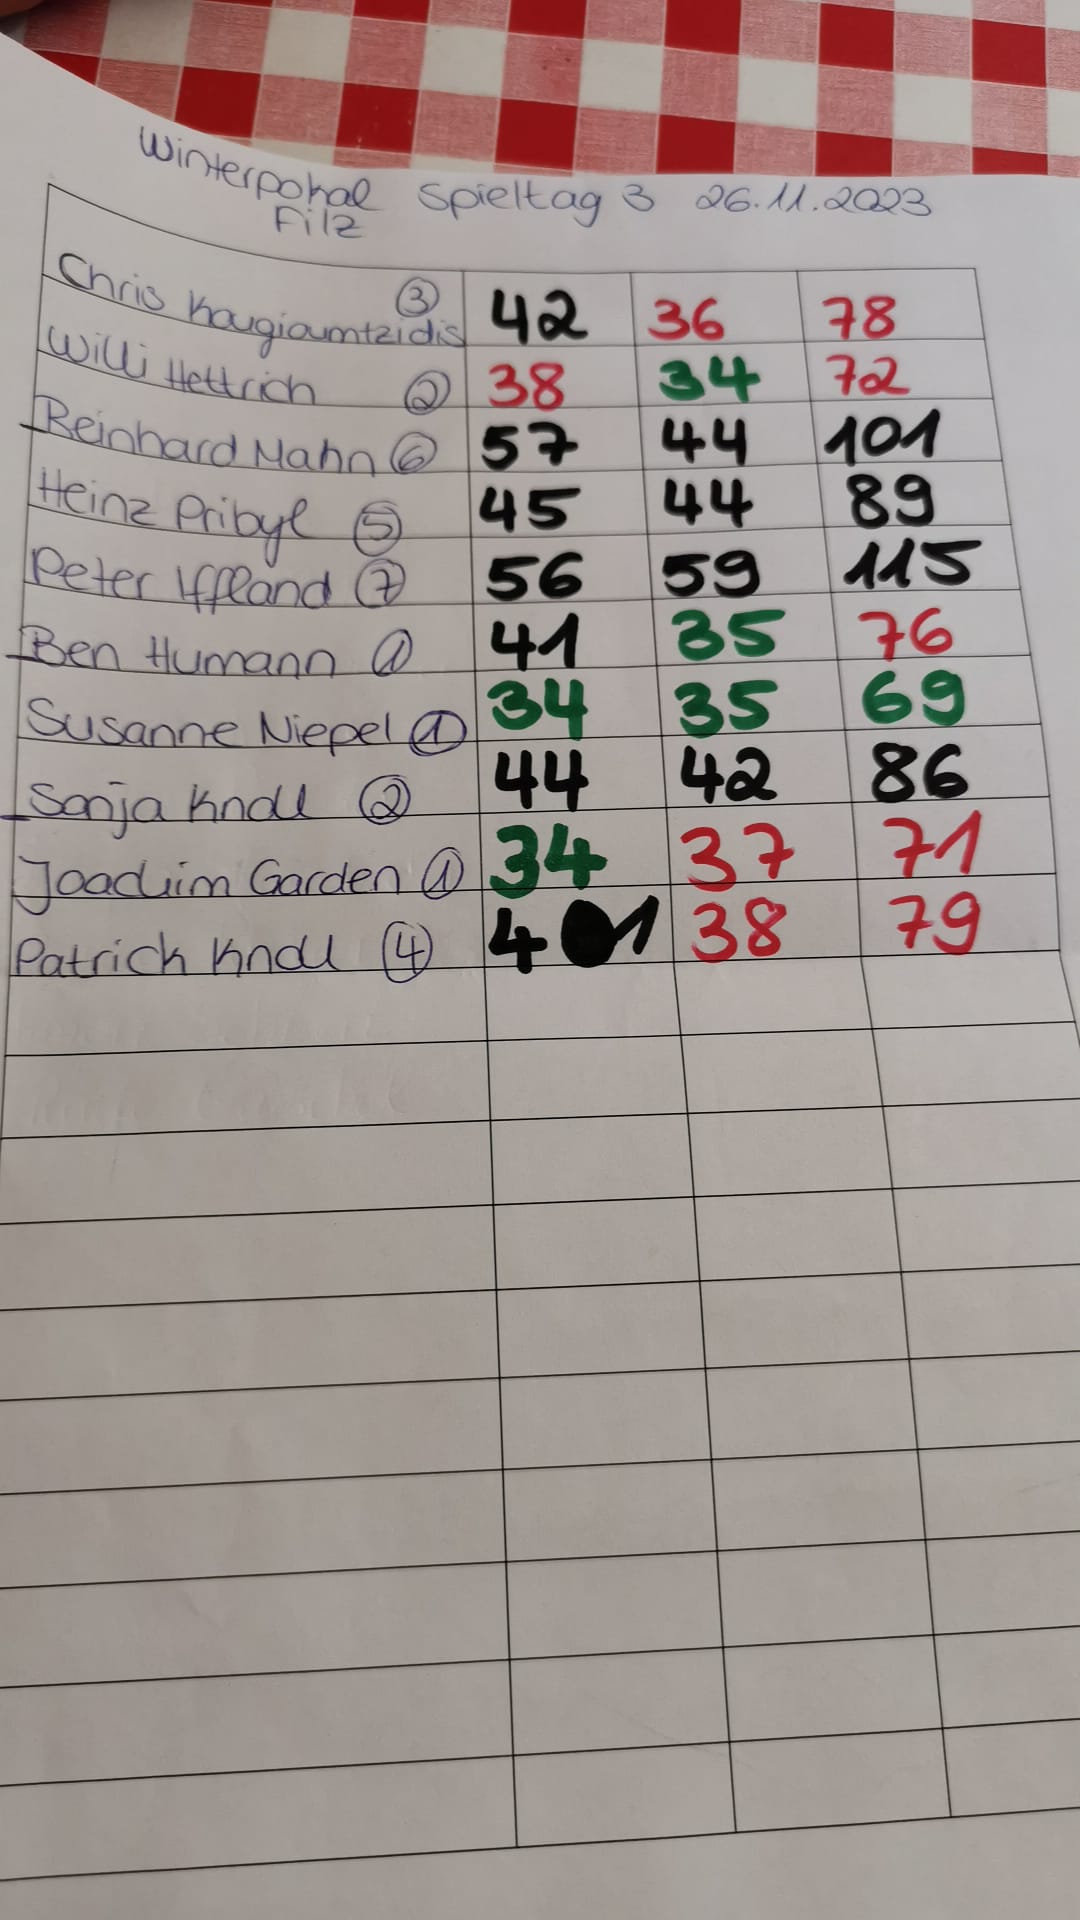 Winterpokal Spieltag 3 26.11.2023
Filz
Chris Kougioumtzidis ③ 42 36 78
Willi Hettrich ② 38 34 72
Reinhard Mahn ⑥ 57 44 101
Heinz Pribyl ⑤ 45 44 89
Peter Iffland ⑦ 56 59 115
Ben Humann ① 41 35 76
Susanne Niepel ① 34 35 69
Sonja Knoll ② 44 42 86
Joachim Garden ① 34 37 71
Patrick Knoll ④ 41 38 79